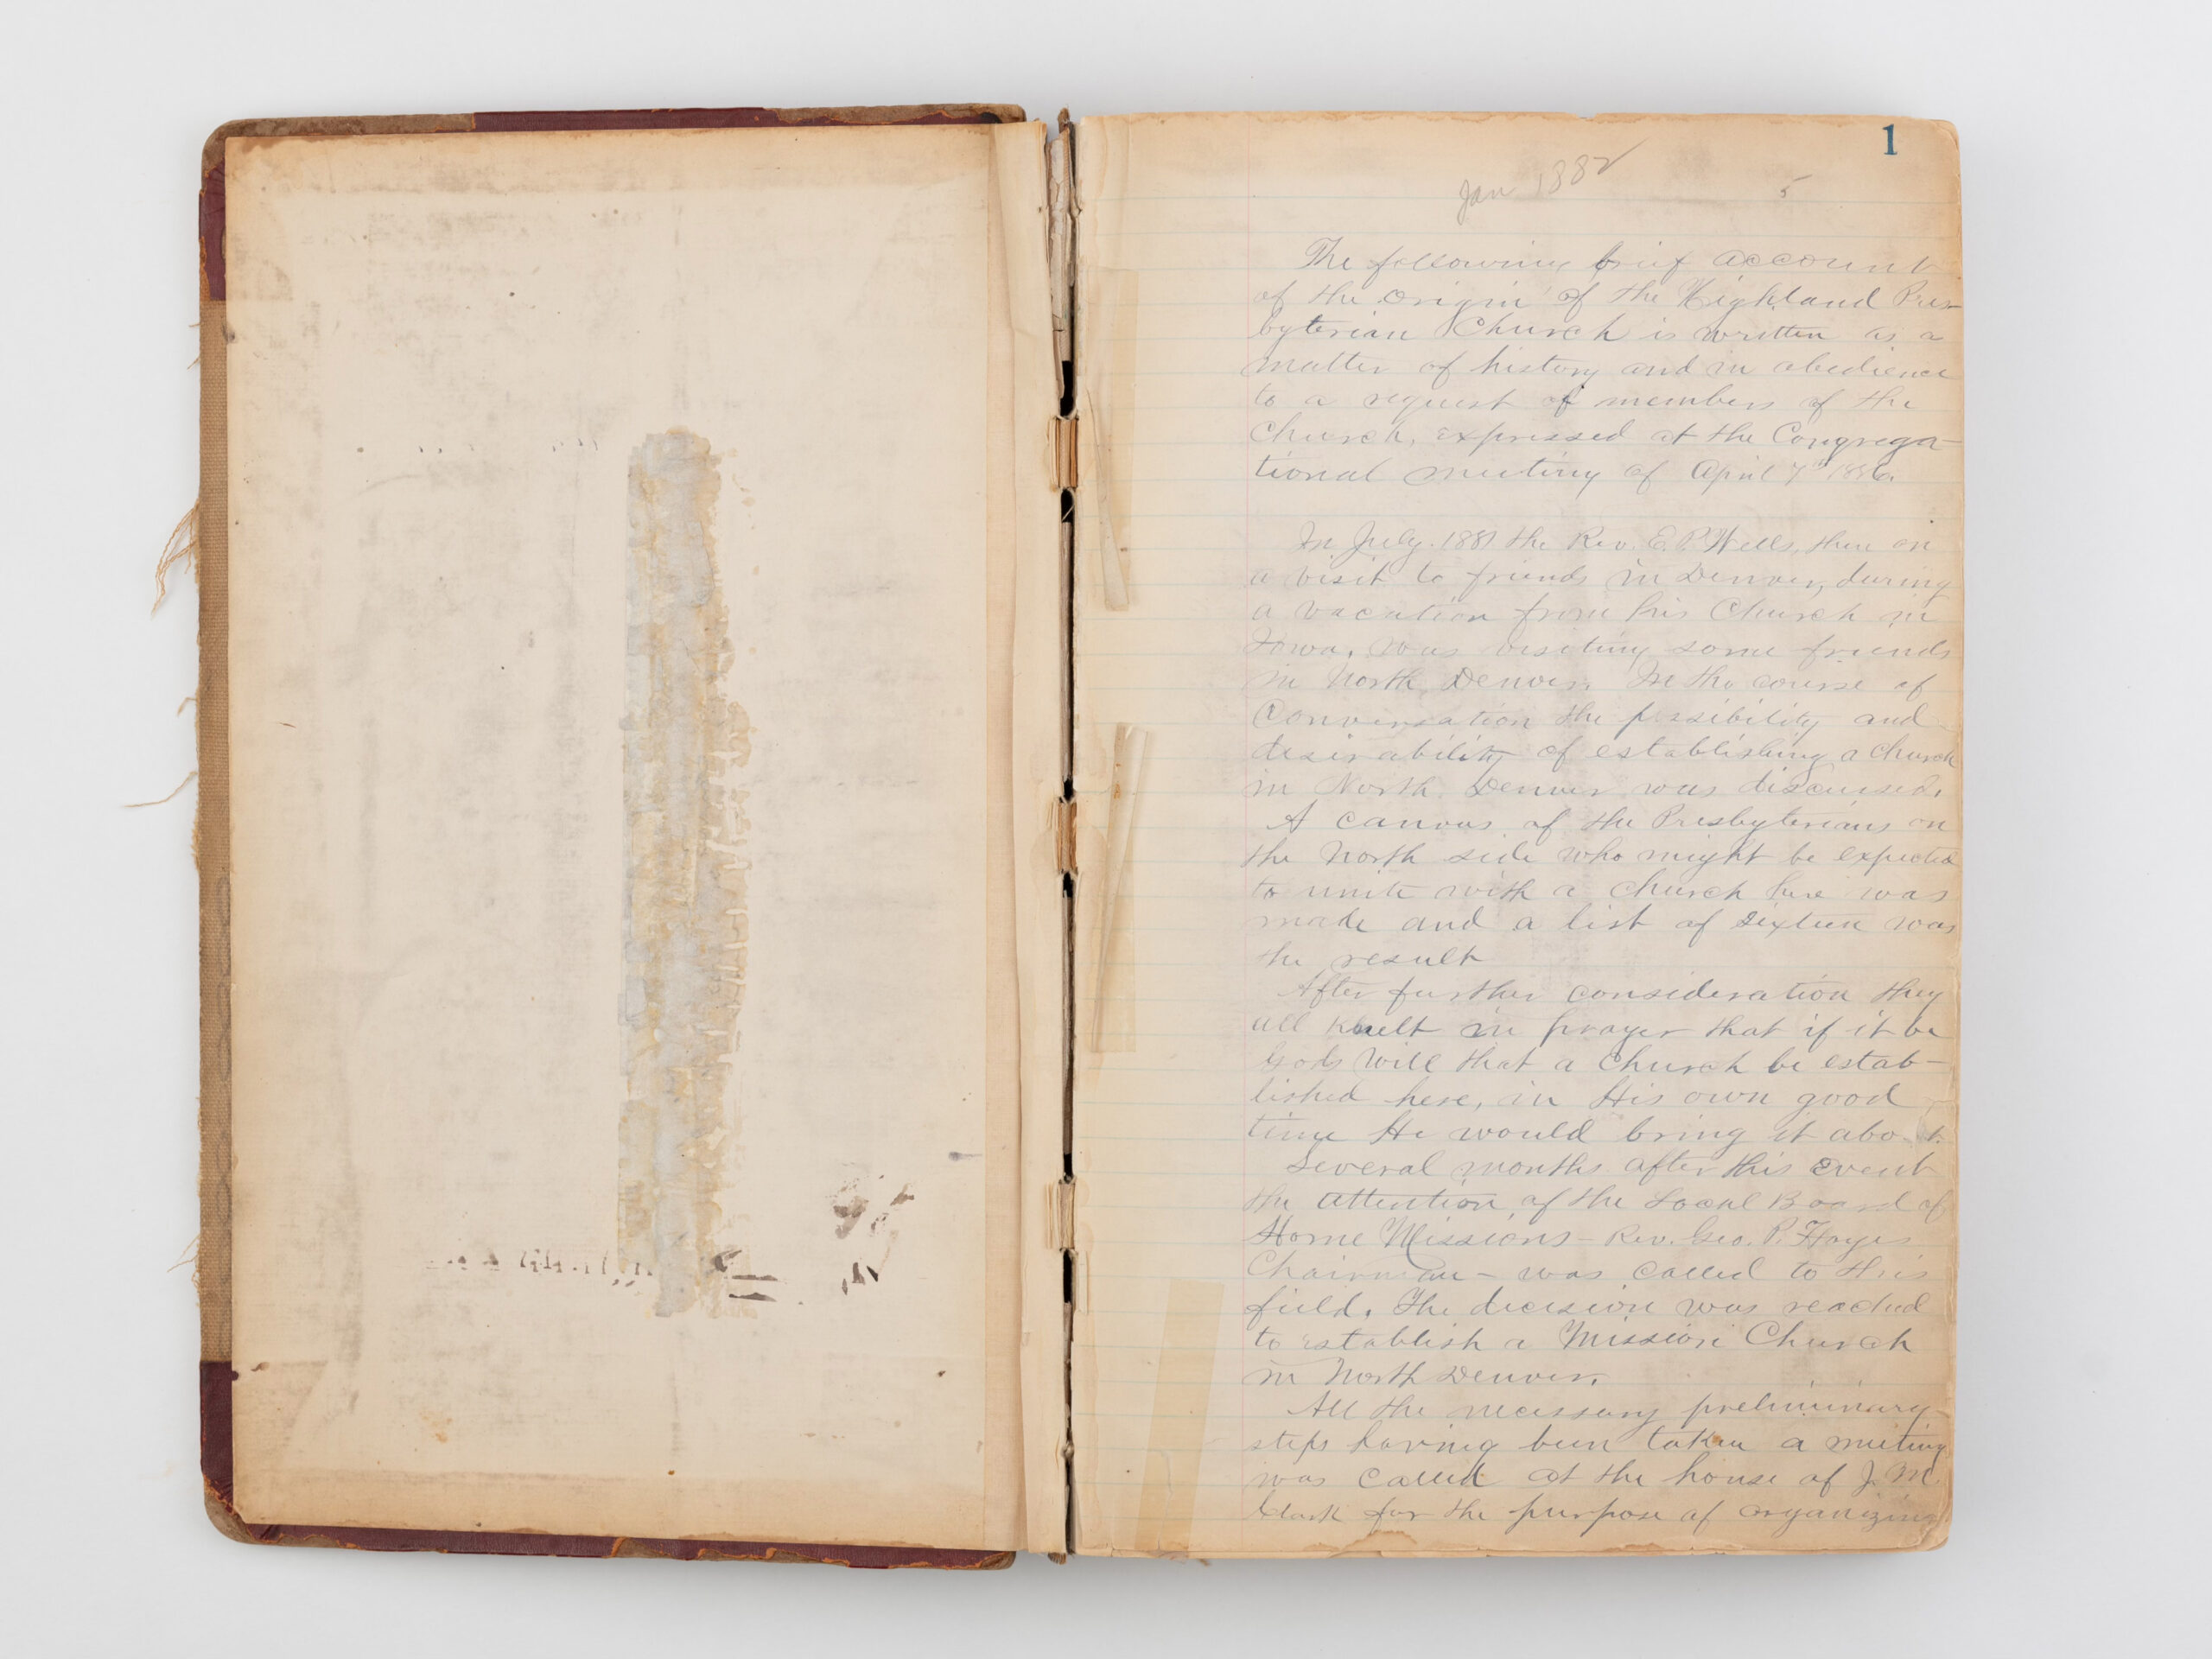 1
Jan 1882
5
The following brief account
of the origin of the Highland Pres-
byterian Church is written as a
matter of history and in obedience
to a request of members of the
Church, expressed at the Congrega-
tional meeting of April 7th 1886.
In July 1881 the Rev. E. P. Wells, then on
a visit to friends in Denver, during
a vacation from his Church in
Iowa, was visiting some friends
in North Denver. In the course of
Conversation the possibility and
desirability of establishing a church
in North Denver was discussed.
A canvas of the Presbyterians on
the North side who might be expected
to unite with a church here was
made and a list of sixteen was
the result
After further consideration they
all knelt in prayer that if it be
Gods will that a Church be estab-
lished here, in His own good
time He would bring it about.
Several months after this event
the attention of the Local Board of
Home Missions - Rev. Geo. P. Hays
Chairman - was called to this
field. The decision was reached
to establish a Mission Church
in North Denver.
All the necessary preliminary
steps having been taken a meeting
was called at the house of J. M.
Clark for the purpose of organizing